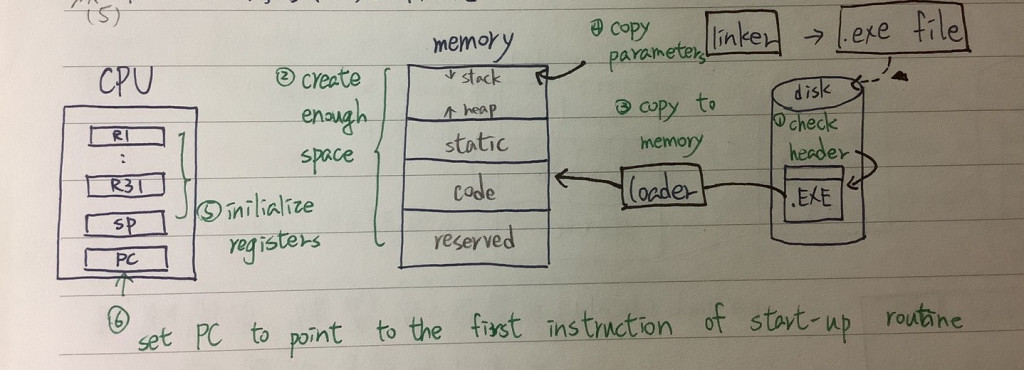 (5)
CPU
R1
:
R31
SP
PC
② create
enough
space
⑤ inilialize
registers
memory
↓ stack
↑ heap
static
code
reserved
④ copy
parameters
linker → .exe file
③ copy to
memory
loader
disk
① check
header
.EXE
⑥
set PC to point to the first instruction of start-up routine